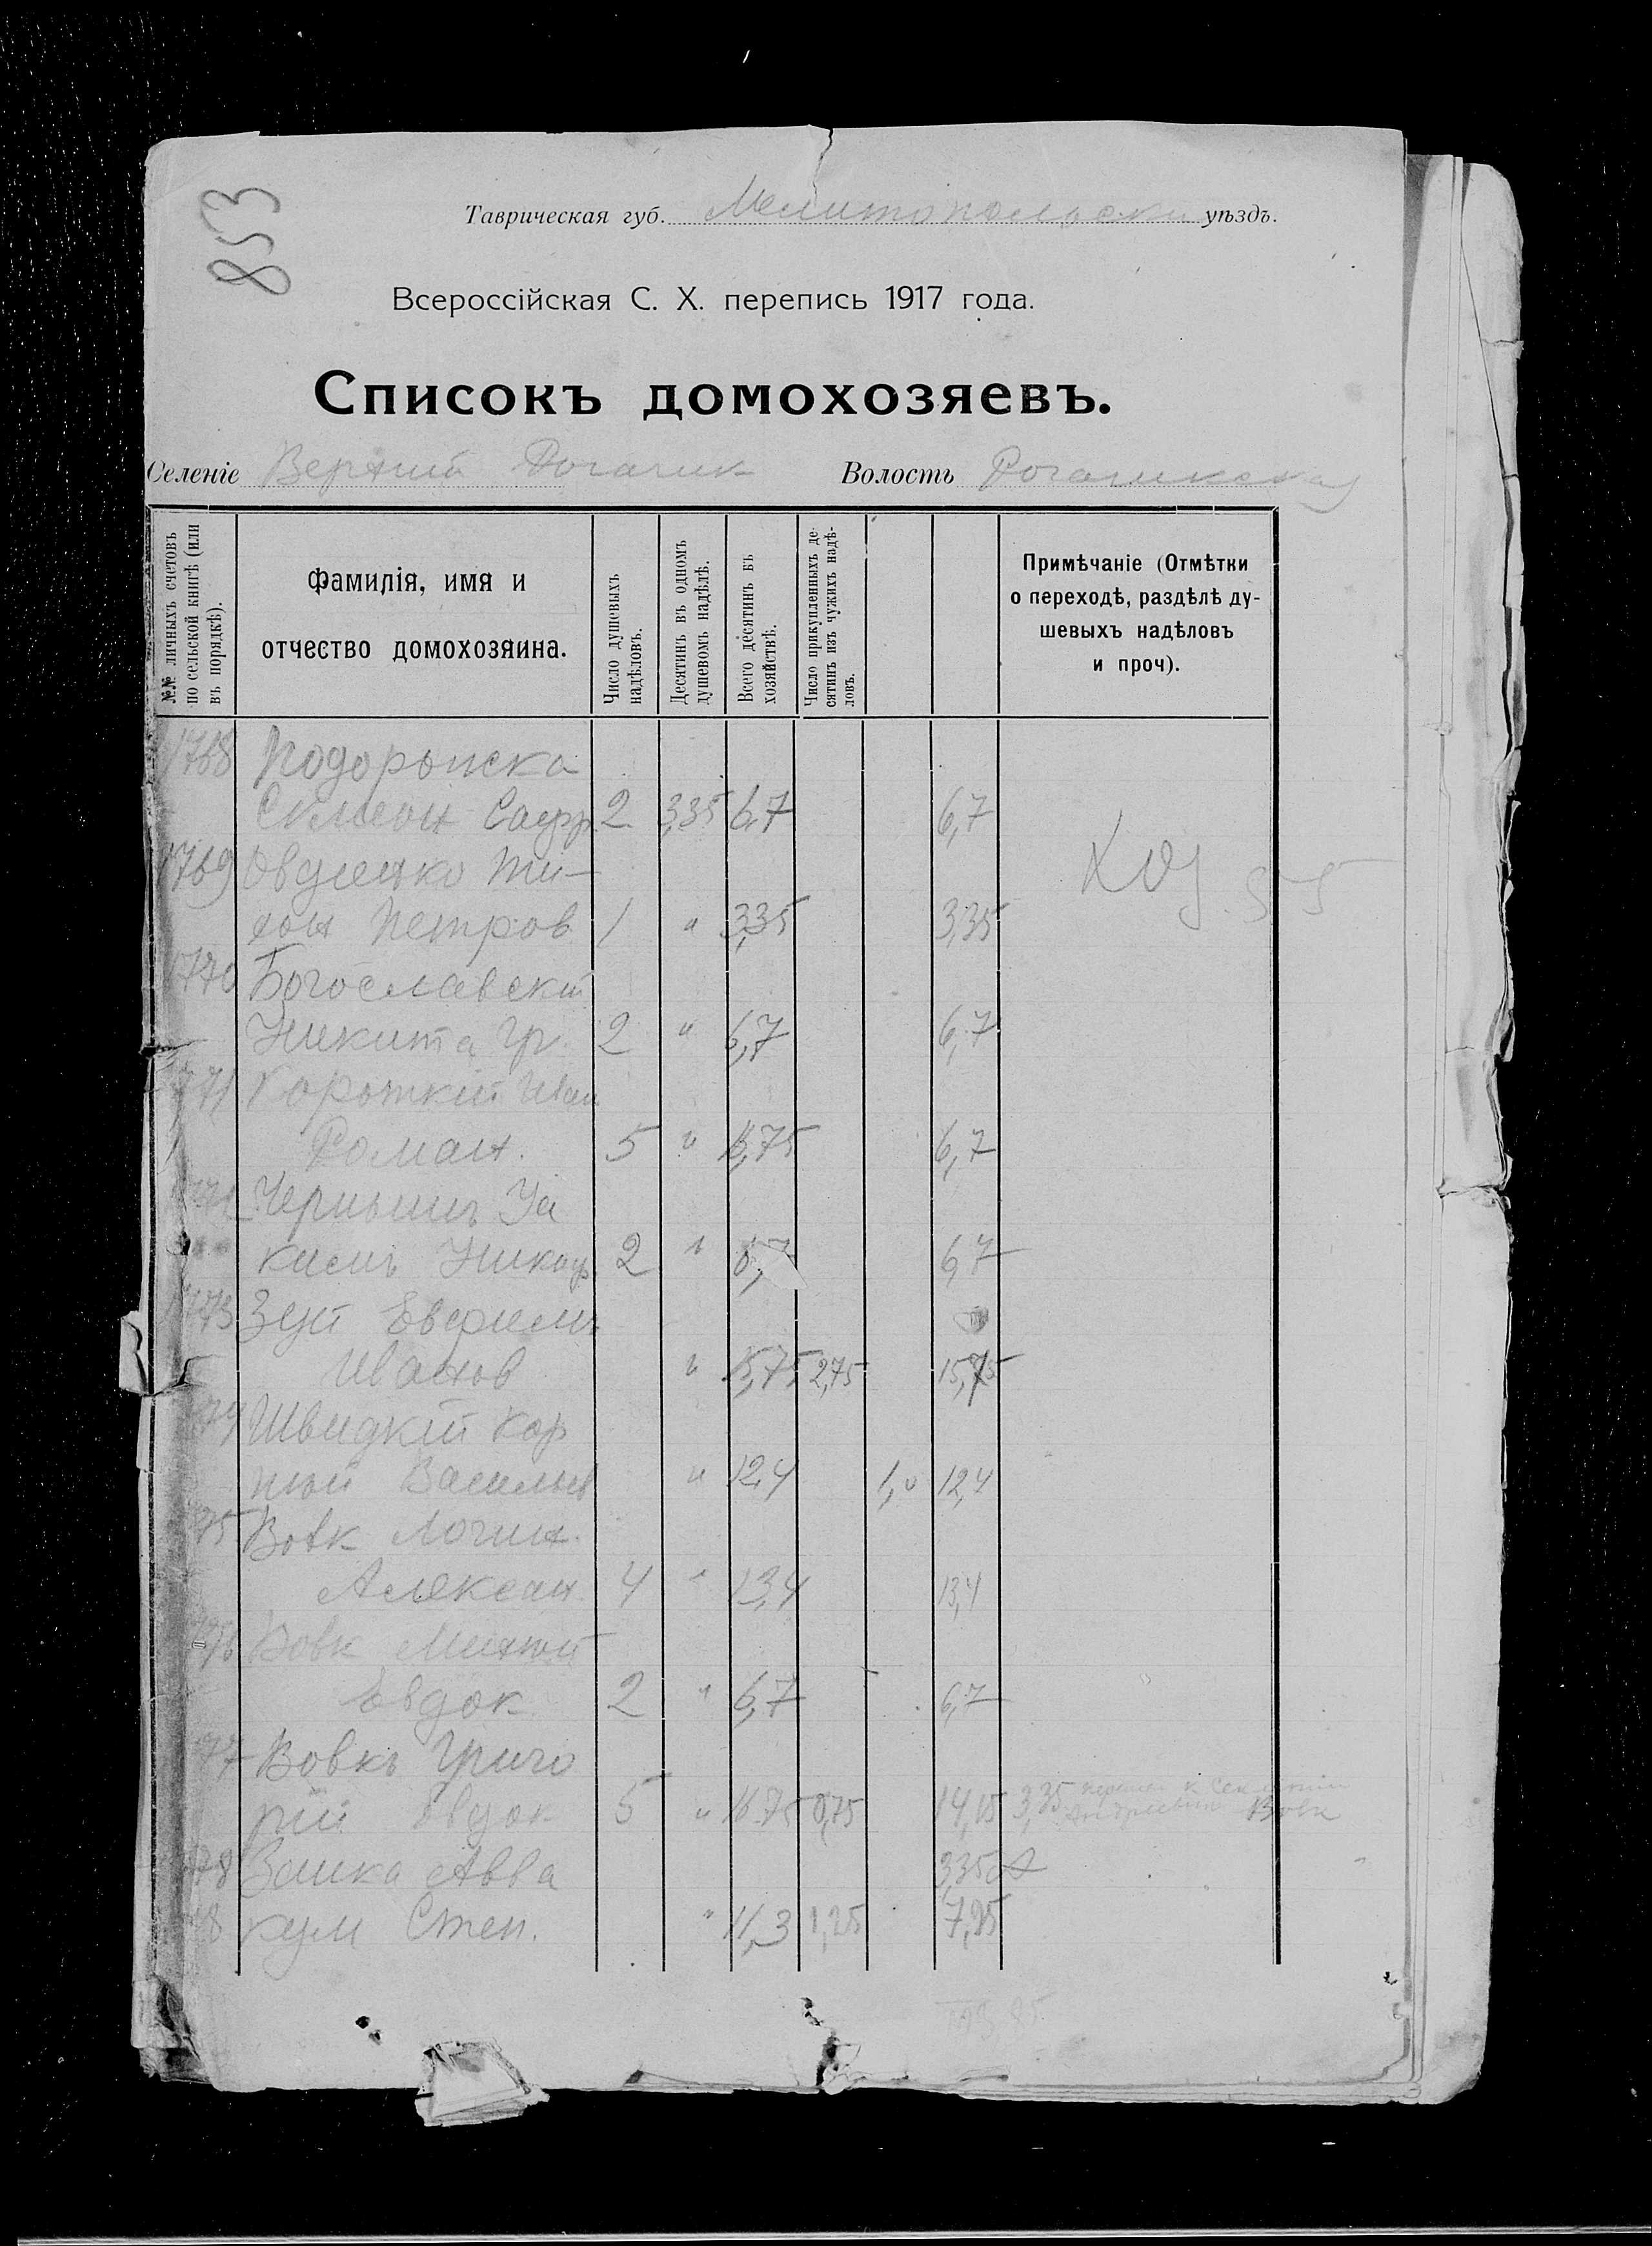 853
Таврическая губ. Мелитопольски уѣздъ.
Всероссійская С. Х. перепись 1917 года.
Списокъ домохозяевъ.
Селеніе Верхній Рогачик Волость Рогачикская
№№ личныхъ счетовъ по сельской книгѣ (или въ порядкѣ).
Фамилія, имя и отчество домохозяина.
Число душевыхъ надѣловъ.
Десятинъ въ одномъ душевомъ надѣлѣ.
Всего десятинъ въ хозяйствѣ.
Число прикупленныхъ десятинъ изъ чужихъ надѣловъ.
Примѣчаніе (Отмѣтки
о переходѣ, раздѣлѣ ду-
шевыхъ надѣловъ
и проч).
1768
Семеон 2 3,35 6,7 6,7
1769 Овдиенко Ти-
хон Петров 1 " 3,35 3,35
1770 Богославскій
Никита Гр. 2 " 6,7 6,7
771 Короткій Иван
Роман. 5 " 16,75 6,7
Чернышъ Іа
кимъ Никиф. 2 " 6,7 6,7
1773 Зуй Евфимъ
Иванов " 15,75 2,75 15,75
74 Швидкій Кор
ній Васильев " 12,4 1,0 12,4
75 Вовк Логин.
Алексан. 4 " 13,4 13,4
76 Вовк
Евдок 2 " 6,7 6,7
77 Вовкъ Григо
рій Евдок 5 " 16,75 0,75 14,15 3,35 Вовк
78 Заика Авва 3,35
кум Степ. " 11,3 1,25 7,95